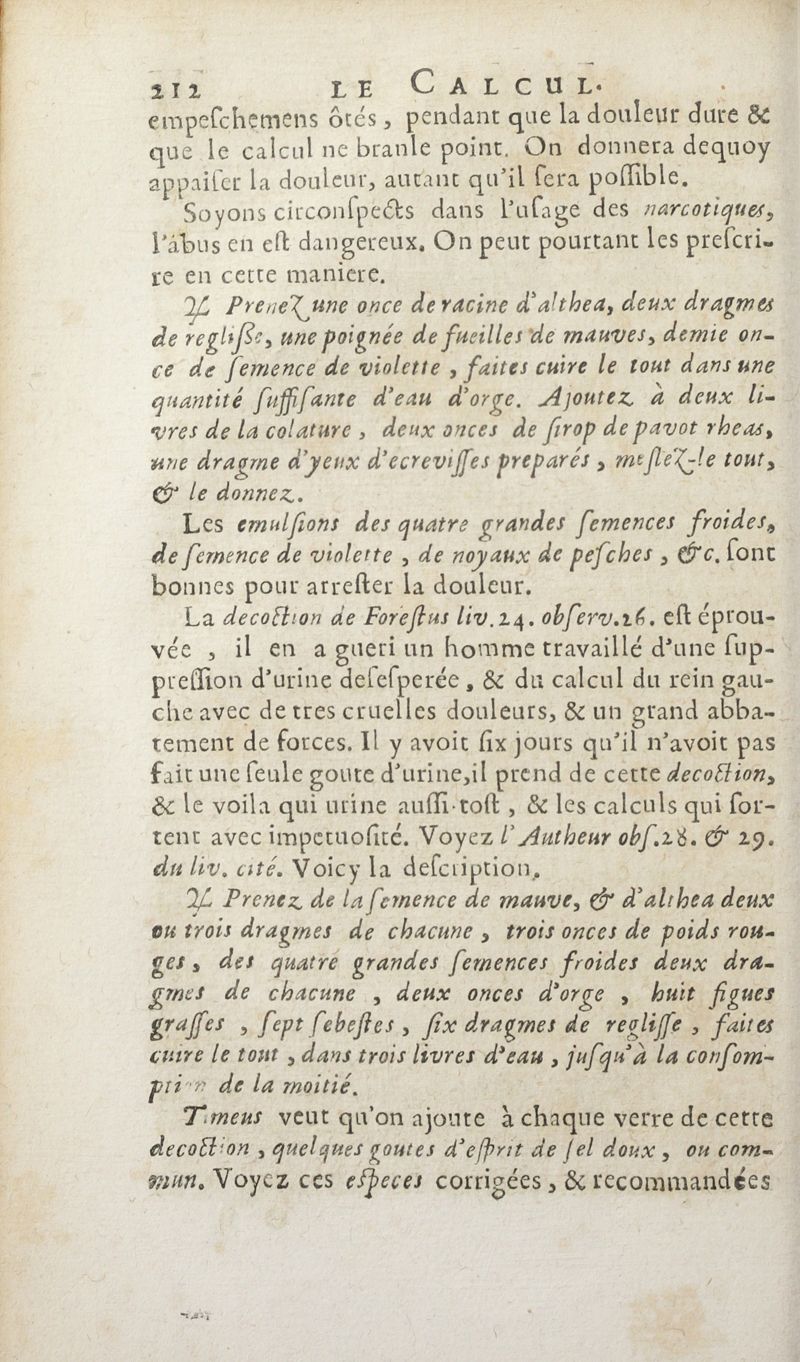 212 LE CALCUL.
empeſchemens ôtés, pendant que la douleur dure &
que le calcul ne branle point. On donnera dequoy
appaiſer la douleur, autant qu'il ſera poſſible.
Soyons circonſpects dans l'uſage des narcotiques,
l'ábus en eſt dangereux. On peut pourtant les preſcri-
re en cette maniere.
℞ Prenez une once de racine d'althea, deux dragmes
de regliſſe, une poignée de fueilles de mauves, demie on-
ce de ſemence de violette, faites cuire le tout dans une
quantité ſuffiſante d'eau d'orge. Ajoutez à deux li-
vres de la colature, deux onces de ſirop de pavot rheas,
une dragme d'yeux d'ecreviſſes preparés, meſlez-le tout,
& le donnez.
Les emulſions des quatre grandes ſemences froides,
de ſemence de violette, de noyaux de peſches, &c. ſont
bonnes pour arreſter la douleur.
La decoction de Foreſtus liv. 24. obſerv. 26. eſt éprou-
vée, il en a gueri un homme travaillé d'une ſup-
preſſion d'urine deſeſperée, & du calcul du rein gau-
che avec de tres cruelles douleurs, & un grand abba-
tement de forces. Il y avoit ſix jours qu'il n'avoit pas
fait une ſeule goute d'urine, il prend de cette decoction,
& le voila qui urine auſſi-toſt, & les calculs qui ſor-
tent avec impetuoſité. Voyez l'Autheur obſ. 28. & 29.
du liv. cité. Voicy la deſcription.
℞ Prenez de la ſemence de mauve, & d'althea deux
ou trois dragmes de chacune, trois onces de poids rou-
ges, des quatre grandes ſemences froides deux dra-
gmes de chacune, deux onces d'orge, huit figues
graſſes, ſept ſebeſtes, ſix dragmes de regliſſe, faites
cuire le tout, dans trois livres d'eau, juſqu'à la conſom-
ption de la moitié.
Timeus veut qu'on ajoute à chaque verre de cette
decoction, quelques goutes d'eſprit de ſel doux, ou com-
mun. Voyez ces eſpeces corrigées, & recommandées